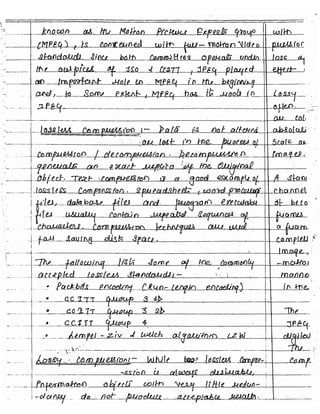 known as the Motion Picture Experts Group
(MPEG), is concerned with full-motion video
standards. Since both committees operate under
the auspices of ISO & CCITT, JPEG played
an important role in MPEG in the beginning
and, to some extent, MPEG has its roots in
JPEG.
Lossless Compression :- Data is not altered
or lost in the process of
compression / decompression. Decompression
generates an exact replica of the original
object. Text compression is a good example of
lossless compression. Spreadsheets, word processing
files, database files and program executable
files usually contain repeated sequences of
characters. Compression techniques are used
for saving disk space.
The following lists some of the commonly
accepted lossless standards:-
• Packbits encoding (Run-length encoding)
• CCITT Group 3 1D
• CCITT Group 3 2D
• CCITT Group 4
• Lempel-Ziv & Welch algorithm LZW
Lossy Compression:- While lossless compre-
-ssion is always desirable,
information objects with very little redun-
-dancy do not produce acceptable results.
with
loss of
effect
Lossy
often
or col
absolute
Scale or
images.
A stan
channel
of
frames
a fram
complete
image,
-motion
manne
in the
The
JPEG
digital
The
comp